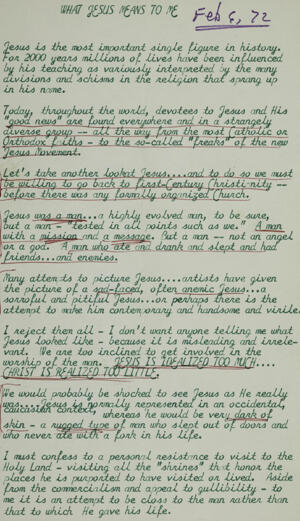 WHAT JESUS MEANS TO ME
Feb 6, 72
Jesus is the most important single figure in history.
For 2000 years millions of lives have been influenced
by his teaching as variously interpreted by the many
divisions and schisms in the religion that sprang up
in his name.
Today, throughout the world, devotees to Jesus and His
"good news" are found everywhere and in a strangely
diverse group -- all the way from the most Catholic or
Orthodox faiths - to the so-called "freaks" of the new
Jesus Movement.
Let's take another lookat Jesus....and to do so we must
be willing to go back to first-Century Christi-nity --
before there was any formally organized Church.
Jesus was a man...a highly evolved man, to be sure,
but a man - "tested in all points such as we." A man
with a mission and a message. But a man -- not an angel
or a god. A man who ate and drank and slept and had
friends...and enemies.
Many attempts to picture Jesus....artists have given
the picture of a sad-faced, often anemic Jesus...a
sorroful and pitiful Jesus...or perhaps there is the
attempt to make him contemporary and handsome and virile.
I reject them all - I don't want anyone telling me what
Jesus looked like - because it is misleading and irrele-
vant. We are too inclined to get involved in the
worship of the man. JESUS IS IDEALIZED TOO MUCH....
CHRIST IS REALIZED TOO LITTLE.
We would probably be shocked to see Jesus as He really
was. Jesus is normally represented in an occidental,
caucasian context, whereas he would be very dark of
skin - a rugged type of man who slept out of doors and
who never ate with a fork in his life.
I must confess to a personal resistance to visit to the
Holy Land - visiting all the "shrines" that honor the
places he is purported to have visited or lived. Aside
from the commercialism and appeal to gullibility - to
me it is an attempt to be close to the man rather than
that to which He gave his life.